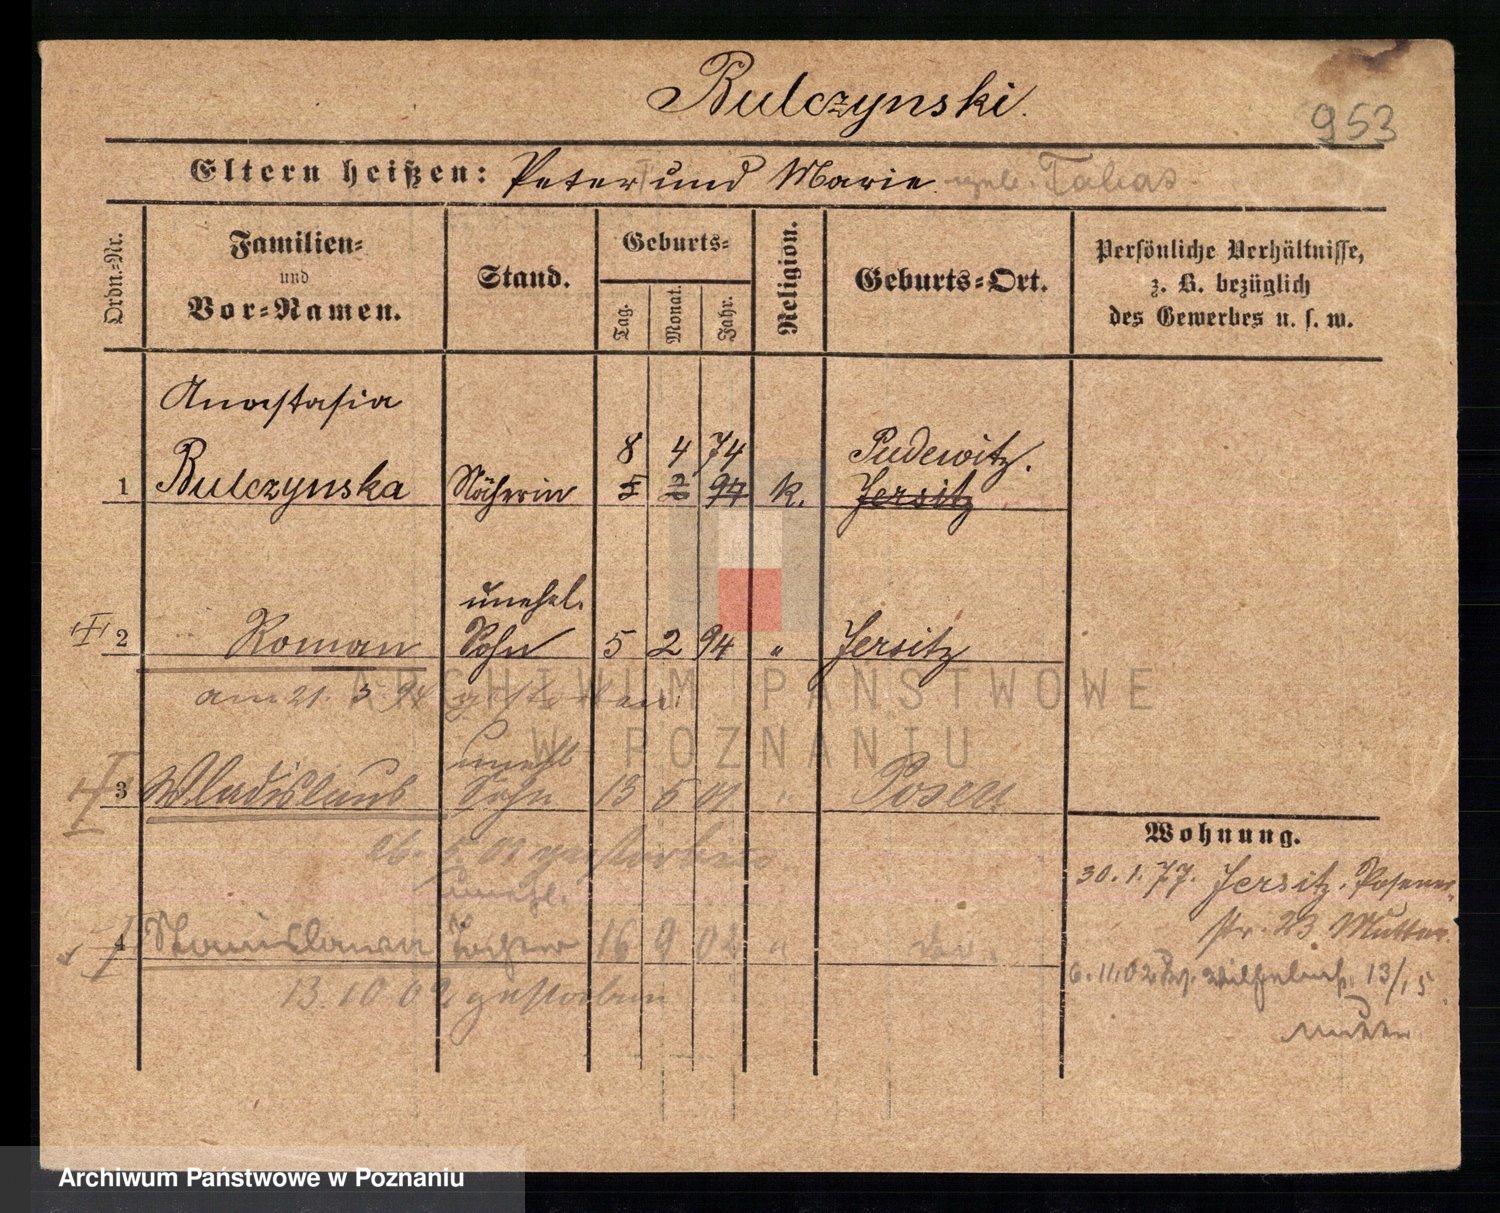 Bulczynski.
953
Eltern heißen: Peter und Marie geb. Talas
Ordn.-Nr.
Familien-
und
Vor-Namen.
Stand.
Geburts-
Tag.
Monat.
Jahr.
Religion.
Geburts-Ort.
Persönliche Verhältnisse,
z. B. bezüglich
des Gewerbes u. s. w.
Anastasia
8 4 74 Pudewitz.
1 Bulczynska Näherin 5 2 94 k. Jersitz
unehel.
2 Roman Sohn 5 2 94 " Jersitz
am 21. 3. 94 gestorben
unehl
3 Wladislaus Sohn 13 5 01 " Posen
26. 01 gestorben
unehl.
4 Stanislawa Tochter 16 9 02 " do.
13. 10 02 gestorben
Wohnung.
30. 1. 77. Jersitz. Posener-
str. 23 Mutter.
6. 11. 02 Wilhelmst. 13/15
Mutter
ARCHIWUM PAŃSTWOWE
W POZNANIU
Archiwum Państwowe w Poznaniu